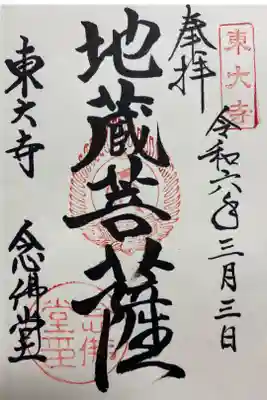 東大寺
奉拝
令和六年三月三日
地蔵菩薩
東大寺
念佛堂